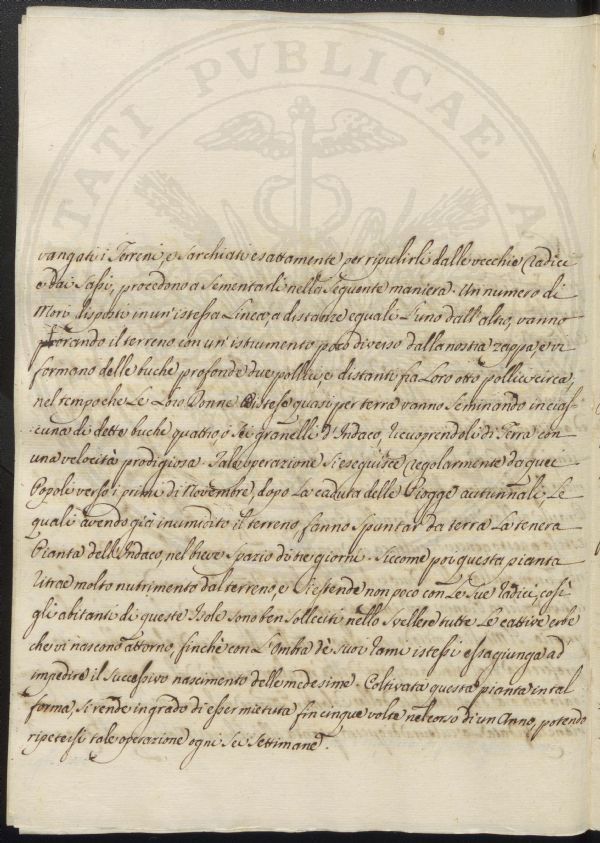 TATI PVBLICAE A
vangati i Terreni, e sarchiati esattamente per ripulirli dalle vecchie Radici
e dai Sassi, procedono a sementarli nella seguente maniera. Un numero di
Mori disposti in un' istessa Linea, a distanze eguali L'uno dall'altro, vanno
forando il terreno con un' istrumento poco diverso dalla nostra zappa, e vi
formano delle buche profonde due pollici, e distanti fra Loro otto pollici circa,
nel tempo che Le Loro Donne distese quasi per terra vanno seminando in cias-
:cuna di dette buche quattro, o sei granelli d'Indaco, ricuoprendoli di Terra con
una velocità prodigiosa. Tale operazione si eseguisce Regolarmente da quei
Popoli verso i primi di Novembre, dopo La caduta delle Piogge autunnali, Le
quali avendo già inumidito il terreno, fanno spuntar da terra La tenera
Pianta dell'Indaco, nel breve spazio di tre giorni. Siccome poi questa pianta
ritrae molto nutrimento dal terreno, e si estende non poco con Le sue radici, così
gli abitanti di queste Isole sono ben solleciti nello svellere tutte Le cattive erbe
che vi nascono attorno, finchè con L'ombra de' suoi rami istessi essa giunga ad
impedire il successivo nascimento delle medesime. Coltivata questa pianta in tal
forma, si rende in grado di esser mietuta fin cinque volte nel corso di un Anno, potendo
ripetersi tale operazione ogni sei settimane.